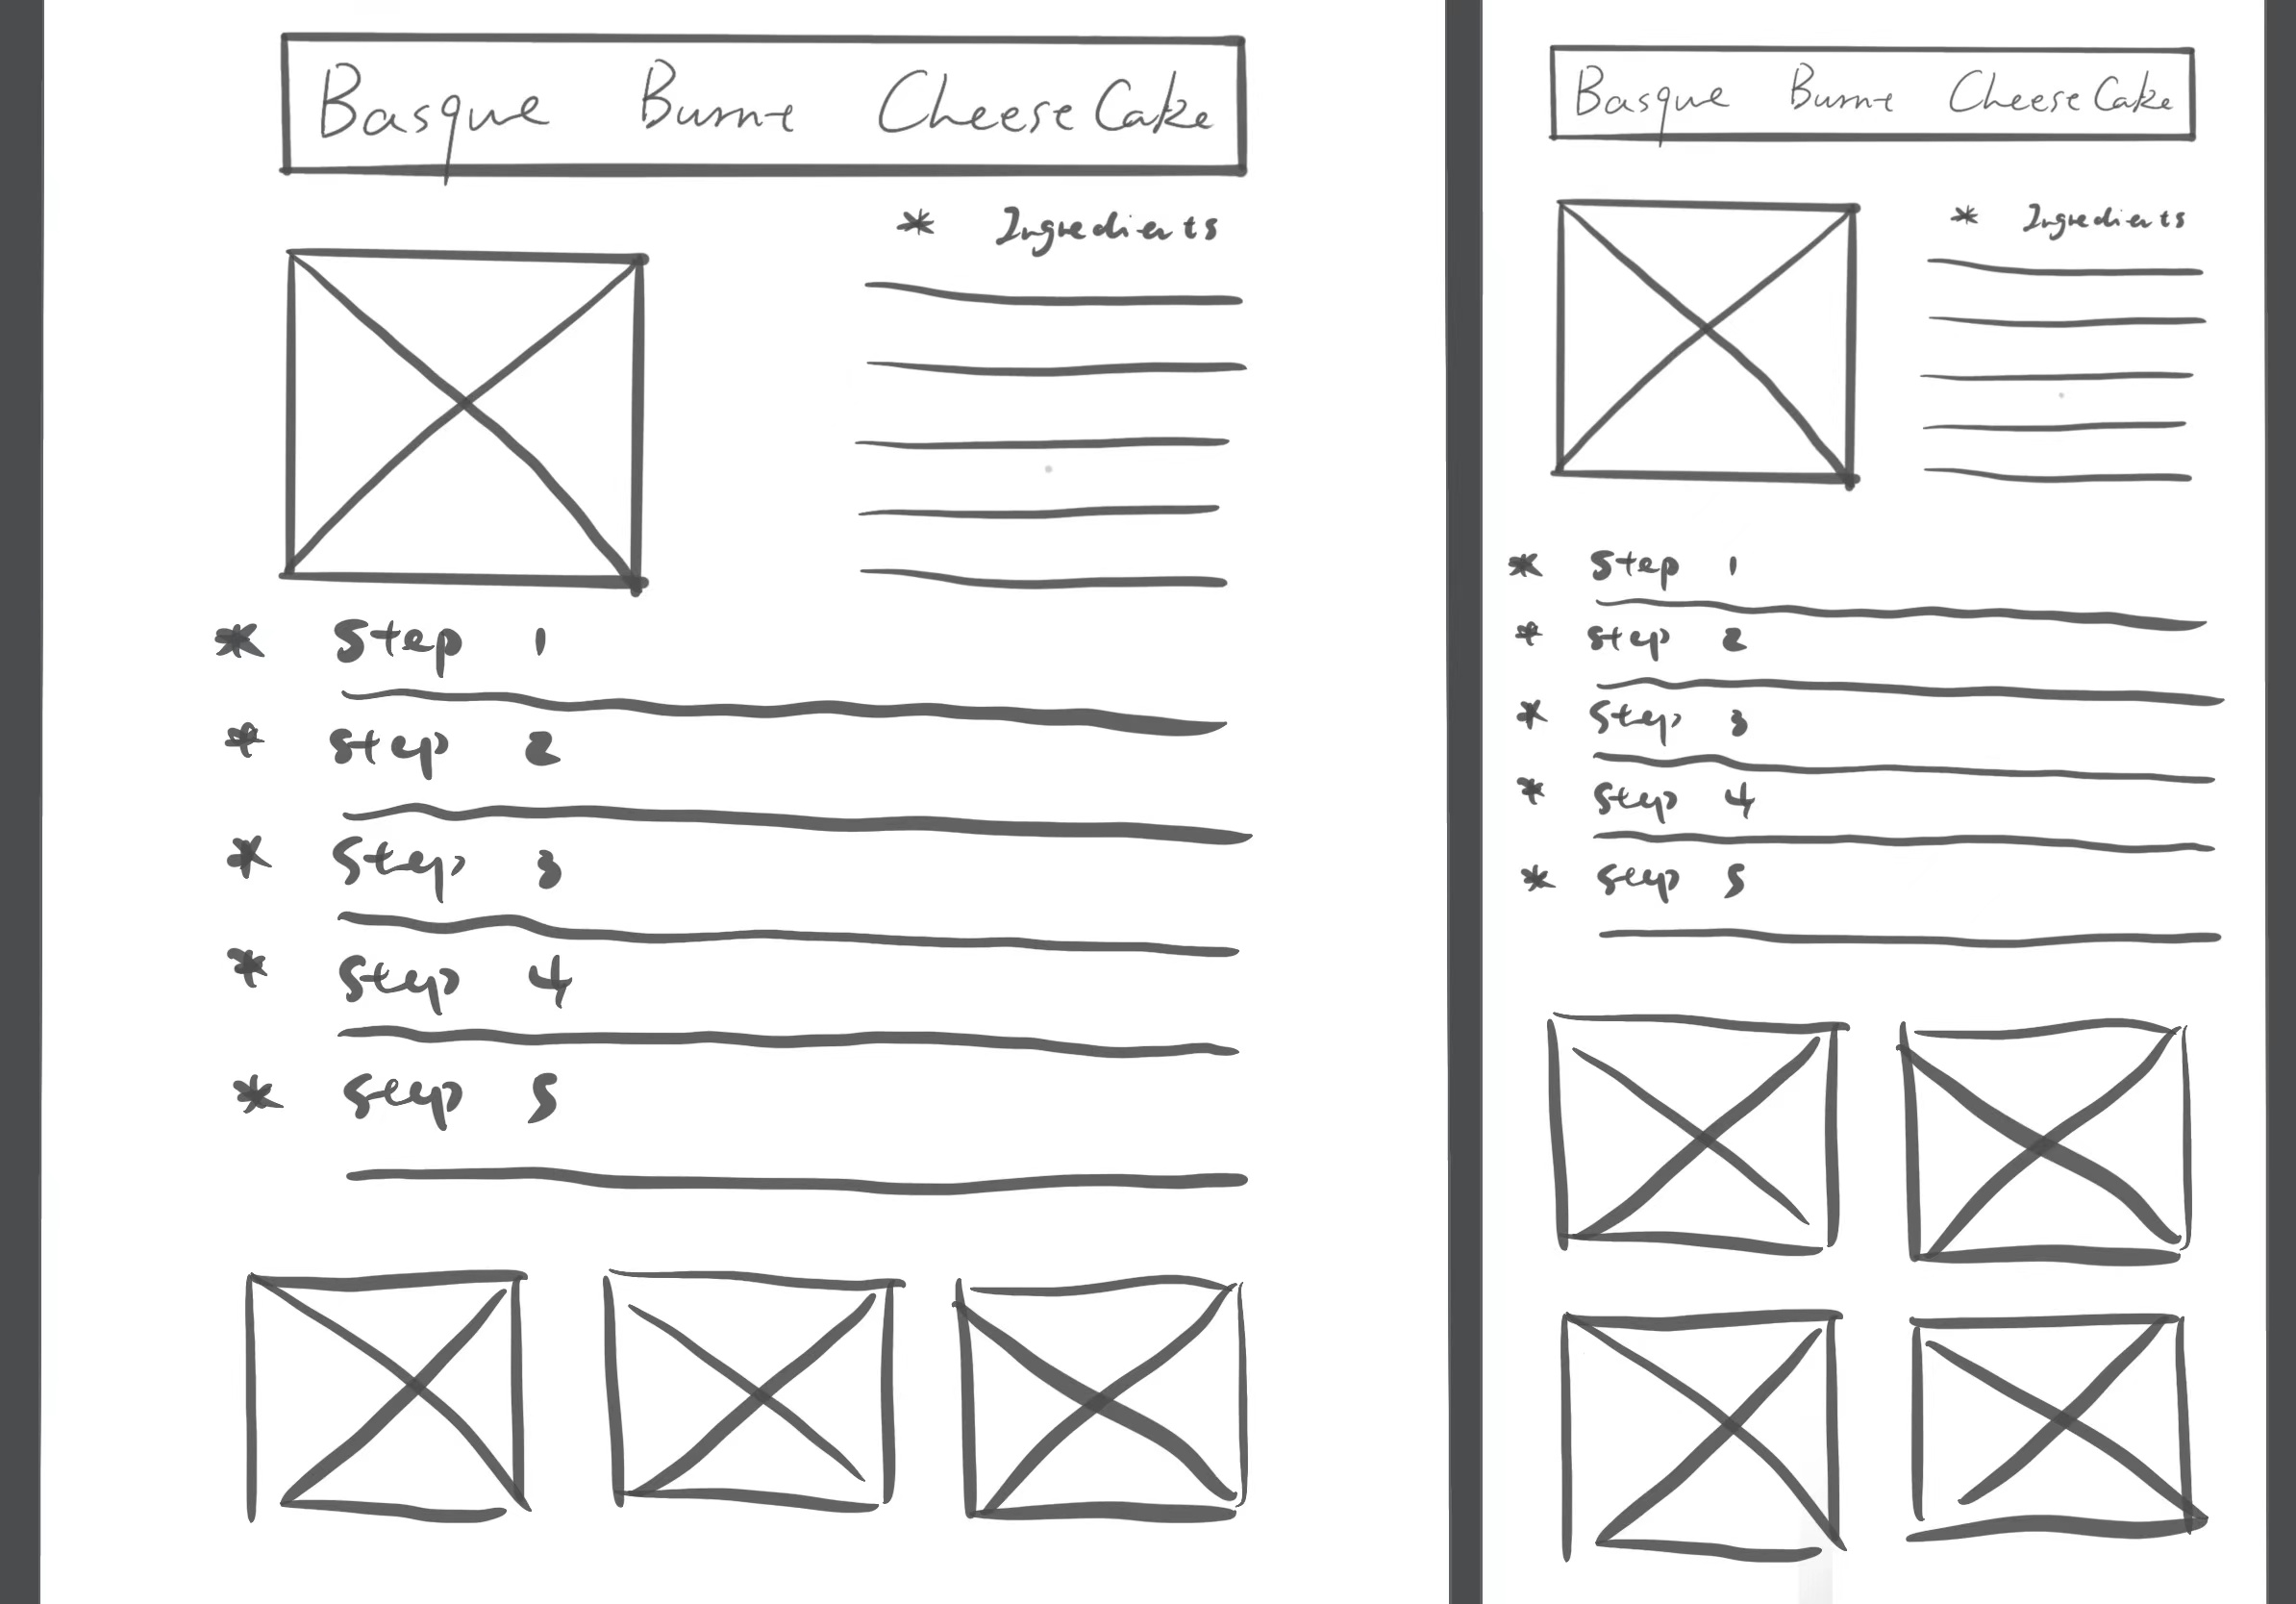 Basque Burnt CheeseCake
* Ingredients
* Step 1
* Step 2
* Step 3
* Step 4
* Seep 5
Basque Burnt CheeseCake
* Ingredients
* Step 1
* Step 2
* Step 3
* Step 4
* Seep 5